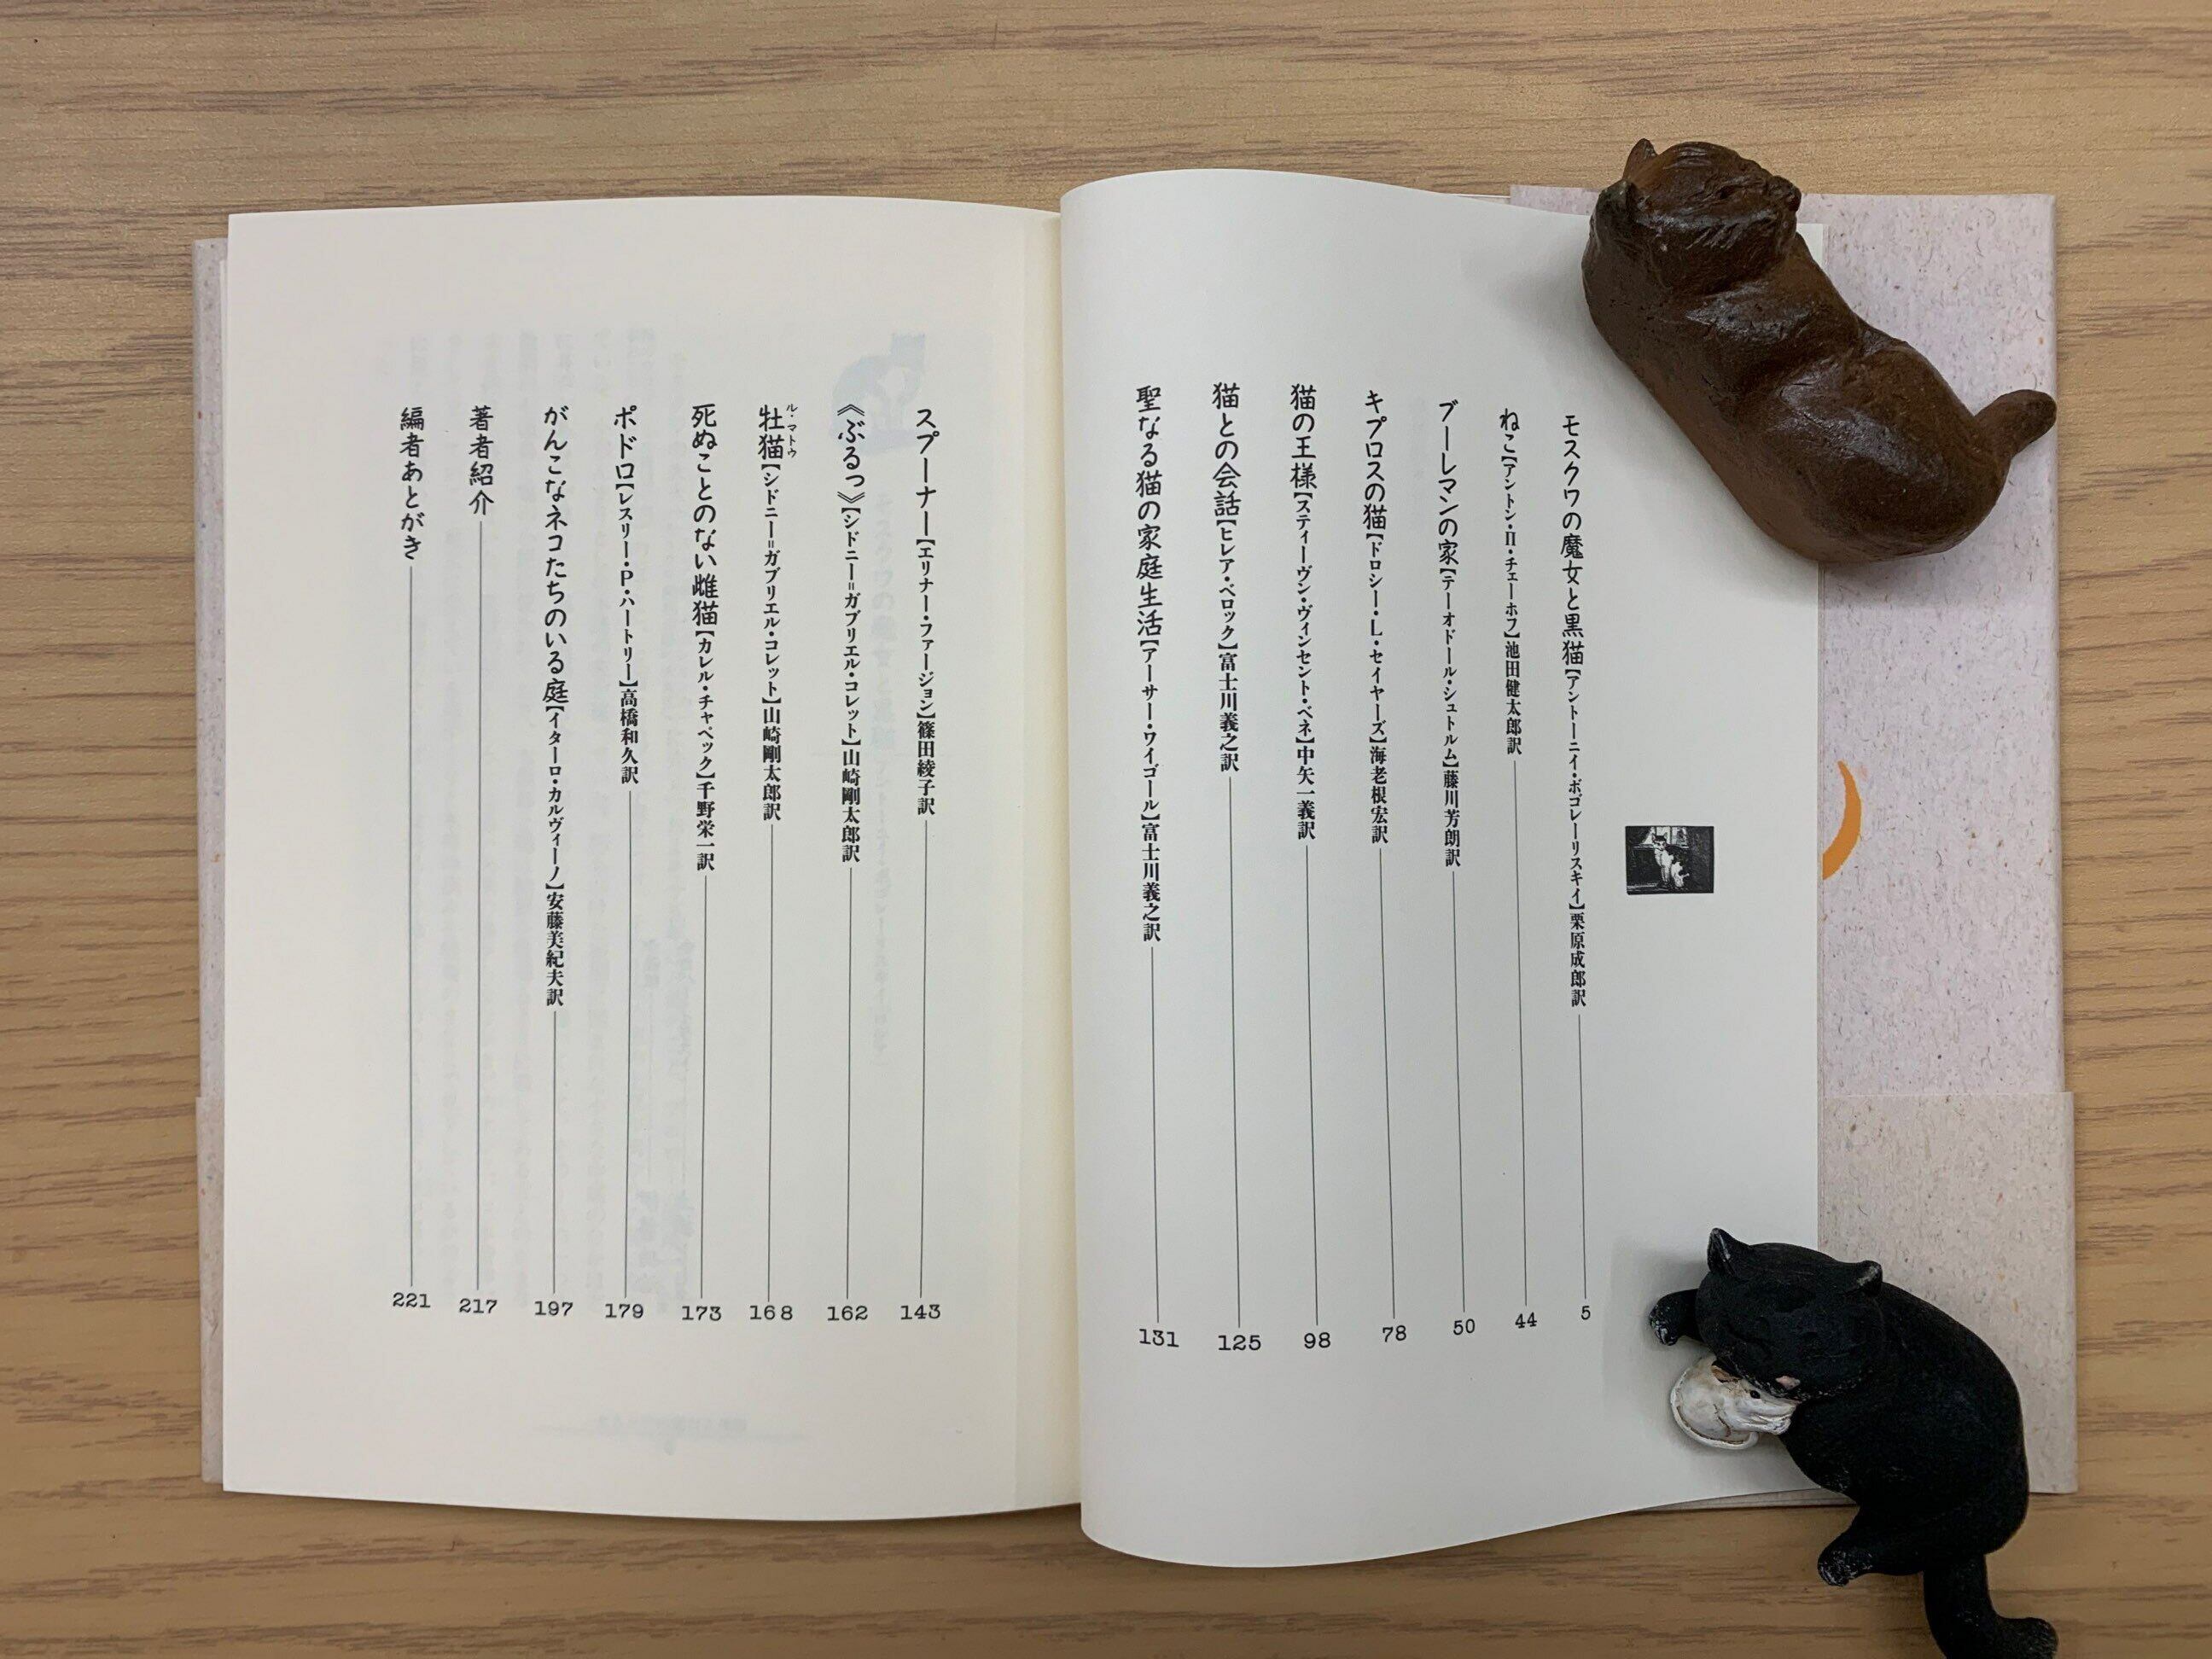 モスクワの魔女と黒猫【アントーニイ・ポゴレーリスキイ】栗原成郎訳 5
ねこ【アントン・П・チェーホフ】池田健太郎訳 44
ブーレマンの家【テーオドール・シュトルム】藤川芳朗訳 50
キプロスの猫【ドロシー・L・セイヤーズ】海老根宏訳 78
猫の王様【スティーヴン・ヴィンセント・ベネ】中矢一義訳 98
猫との会話【ヒレア・ベロック】富士川義之訳 125
聖なる猫の家庭生活【アーサー・ワイゴール】富士川義之訳 131
スプーナー【エリナー・ファージョン】篠田綾子訳 143
《ぶるっ》【シドニー＝ガブリエル・コレット】山崎剛太郎訳 162
ル・マトウ
牡猫【シドニー＝ガブリエル・コレット】山崎剛太郎訳 168
死ぬことのない雌猫【カレル・チャペック】千野栄一訳 173
ポドロ【レスリー・P・ハートリー】高橋和久訳 179
がんこなネコたちのいる庭【イターロ・カルヴィーノ】安藤美紀夫訳 197
著者紹介 217
編者あとがき 221